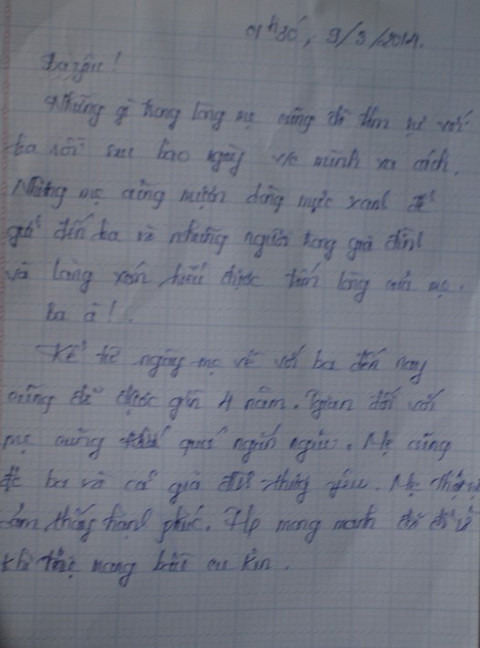 01h30', 9/3/2014.
Ba yêu!
Những gì trong lòng mẹ cũng đã tâm sự với
ba rồi sau bao ngày vc mình xa cách.
Nhưng mẹ cũng mượn dòng mực xanh để
gửi đến ba và những người trong gia đình
và làng xóm hiểu được tấm lòng của mẹ.
Ba à!
Kể từ ngày mẹ về với ba đến nay
cũng đã được gần 4 năm. đối với
mẹ cũng quá ngắn ngủi. Mẹ cũng
đc ba và cả gia đình thương yêu. Mẹ
cảm thấy hạnh phúc. Hp mong manh đã
khi mang bầu cu Kin.